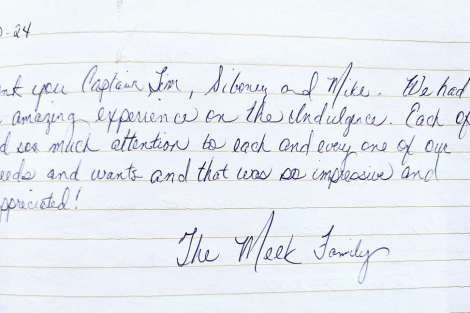 -24
nt you Captain Jim, Siboney and Mike. We had
amazing experience on the Indulgence. Each of
d soo much attention to each and every one of our
eeds and wants and that was so impressive and
ppreciated!
The Meek Family